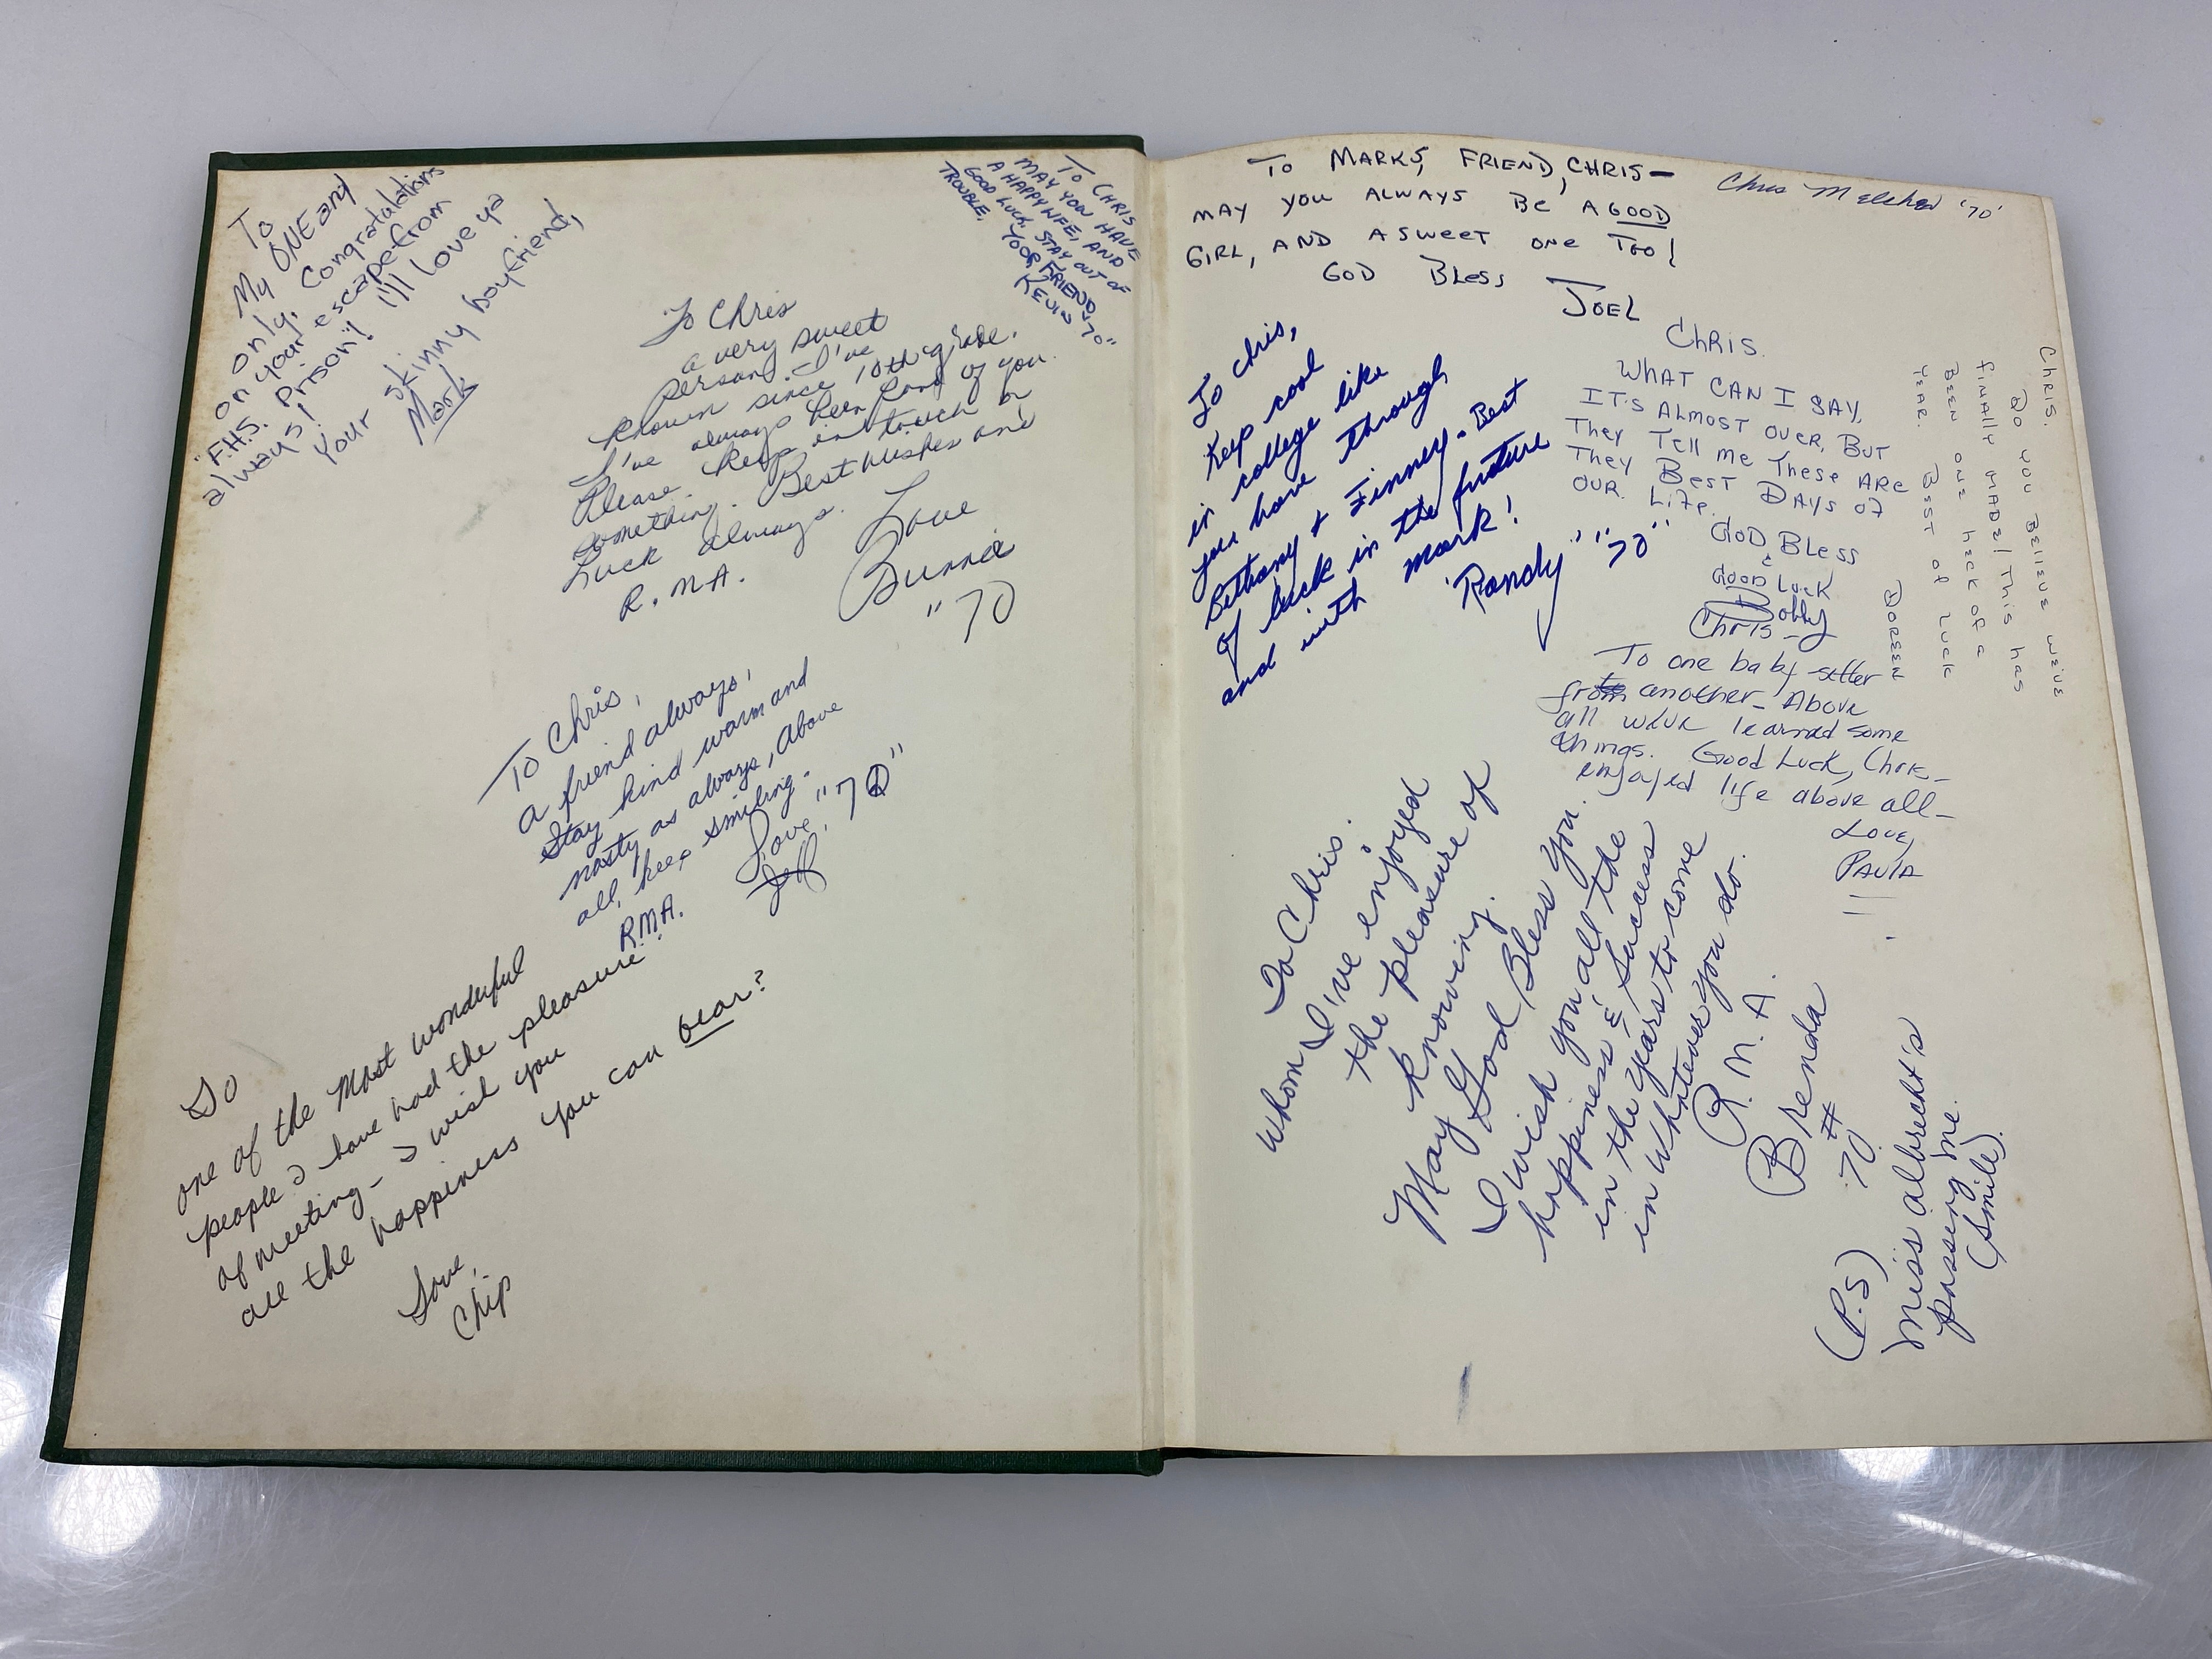 To
My ONE and
only, Congratulations
on your escape from
"F.H.S. Prison"! I'll love ya
always!
Your skinny boyfriend,
Mark
To Chris
MAY YOU HAVE
A HAPPY LIFE, AND
GOOD LUCK. STAY OUT OF
TROUBLE.
YOUR FRIEND,
KEVIN "70"
To Chris
a very sweet
person. I've
known since 10th grade.
I've always been fond of you.
Please keep in touch or
something. Best wishes and
Luck always.
R.M.A.
Love
Bunnie
"70
To Chris,
a friend always,
Stay kind warm and
nasty as always, above
all, keep smiling.
R.M.A.
Love,
Jeff "70"
To
one of the most wonderful
people I have had the pleasure
of meeting - I wish you
all the happiness you can bear?
Love,
Chip
To MARK'S, FRIEND, CHRIS-
MAY YOU ALWAYS BE A GOOD
GIRL, AND A SWEET ONE TOO!
GOD BLESS
JOEL
Chris '70'
To Chris,
Keep cool
in college like
you have through
Bethany & Finney. Best
of luck in the future
and with Mark!
"Randy" "70"
CHRIS.
WHAT CAN I SAY,
IT'S ALMOST OVER, BUT
They Tell me These ARE
They BEST DAYS OF
OUR LIFE.
GOD BLESS
&
GOOD LUCK
Bobby
CHRIS.
DO YOU BELIEVE WE'VE
FINALLY MADE! This has
BEEN ONE HECK OF A
YEAR. BEST OF LUCK
DOREEN
Chris-
To one baby sitter
from another- Above
all we've learned some
things. Good Luck, Chris-
enjoyed life above all-
Love,
PAULA
To Chris.
Whom I've enjoyed
the pleasure of
knowing.
May God Bless You.
I wish you all the
happiness & Success
in the years to come
in whatever you do.
R.M.A.
Brenda
#
70
(P.S)
Miss albrecht's
passing me.
(smile).